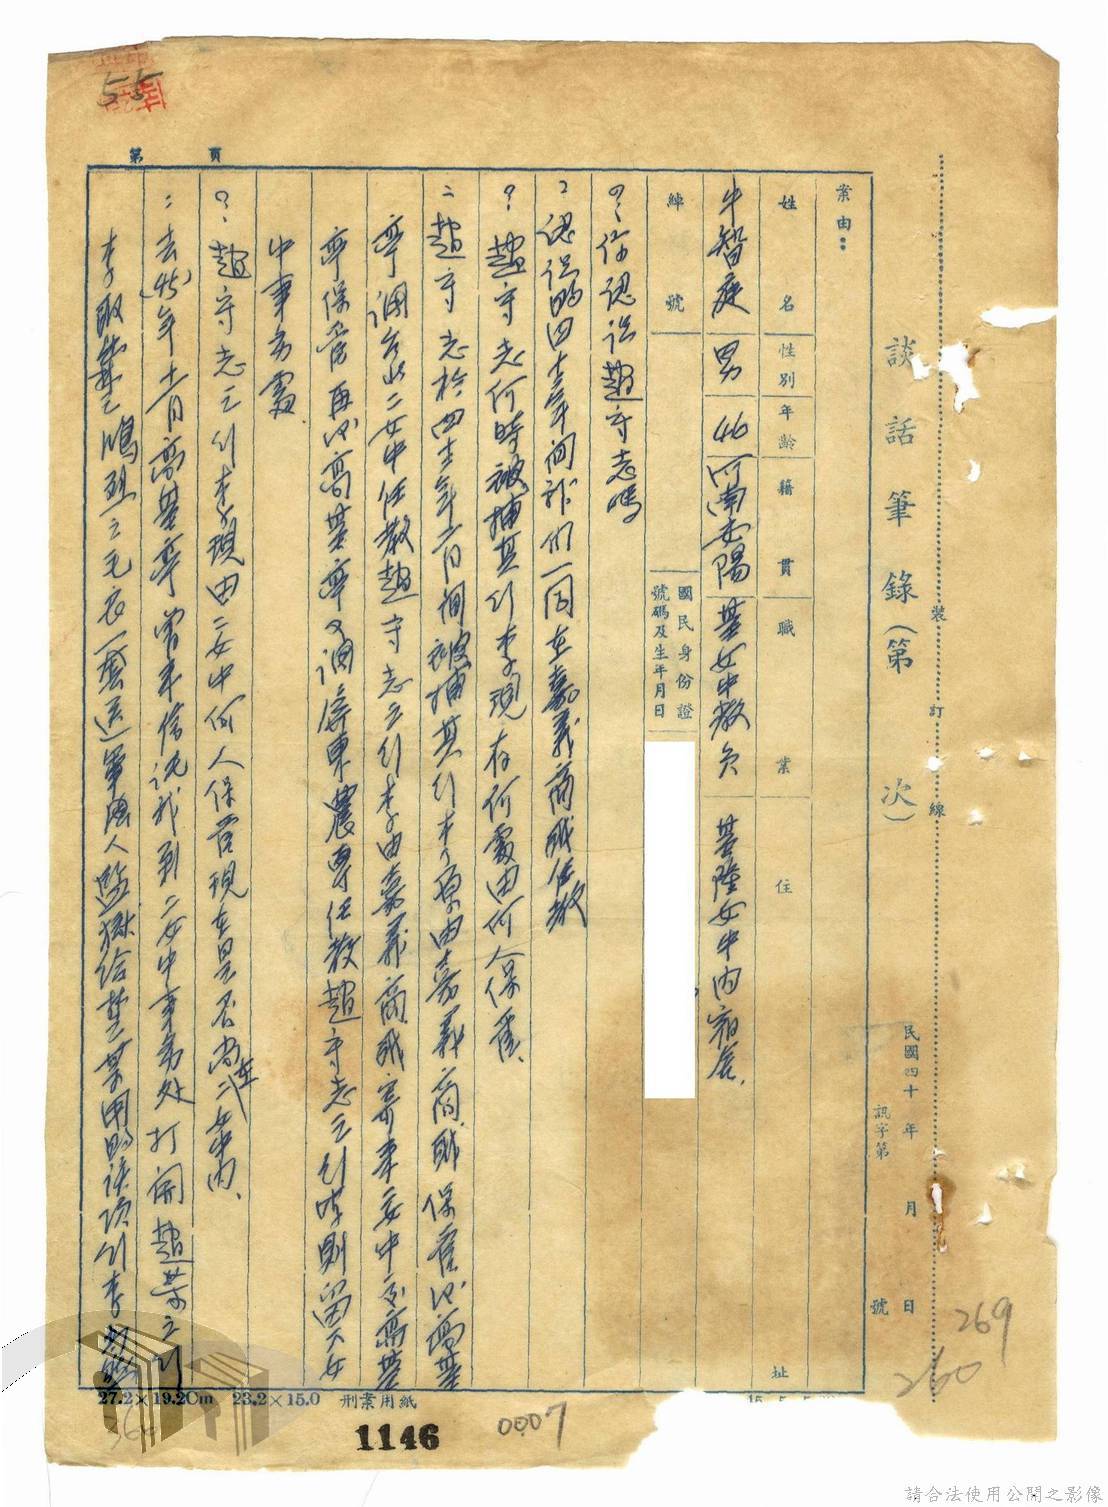 55
第　頁
談話筆錄(第　次)
裝　訂　線
民國四十　年　月　日
訊字第　號
案由:
姓名　性別　年齡　籍貫　職業　住址
牛智庭　男　46　河南安陽　基女中教員　基隆女中內宿舍.
綽號
國民身份證
號碼及生年月日
?:你認識趙守志嗎
:認識的四十年間我們一同在嘉義商職任教
?:趙守志何時被捕其行李現存何處由何人保管.
:趙守志於四十年六月間被捕其行李原由嘉義商職保管以高基
亭調台北二女中任教趙守志之行李由嘉義商職寄來二女中交高基
亭保管再以高基亭又調屏東農專任教趙守志之行李則留下女
中事務處
?:趙守志之行李現由二女中何人保管現在是否尚在二女中內.
:去(45)年十一月高基亭曾來信託我到二女中事務处打開趙某之行
李取楚鴻烈之毛衣一套送軍法人監獄給楚某用的該項行李
27.2×19.2Cm　23.2×15.0　刑案用紙
1146
0007
269
260
請合法使用公開之影像